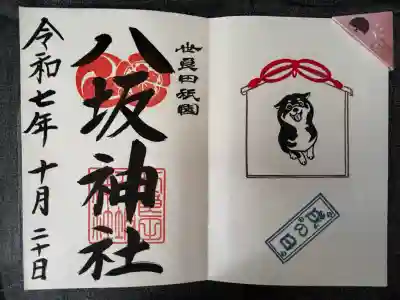 世良田祇園
八坂神社
令和七年 十月 二十日
戌の日